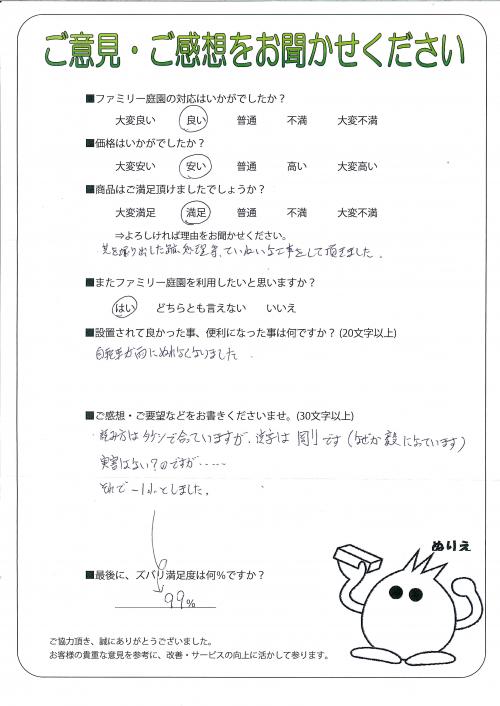 ご意見・ご感想をお聞かせください
■ファミリー庭園の対応はいかがでしたか？
大変良い 良い 普通 不満 大変不満
■価格はいかがでしたか？
大変安い 安い 普通 高い 大変高い
■商品はご満足頂けましたでしょうか？
大変満足 満足 普通 不満 大変不満
⇒よろしければ理由をお聞かせください。
を掘り出した跡処理等、ていねいな工事をして頂きました。
■またファミリー庭園を利用したいと思いますか？
はい どちらとも言えない いいえ
■設置されて良かった事、便利になった事は何ですか？(20文字以上)
自転車が雨にぬれなくなりました．
■ご感想・ご要望などをお書きくださいませ。(30文字以上)
読み方はタケシで合っていますが、漢字は 剛 です（なぜか 毅 になっています）
実害はない？のですが……
それで -1%としました。
■最後に、ズバリ満足度は何％ですか？
99％
ぬりえ
ご協力頂き、誠にありがとうございました。
お客様の貴重な意見を参考に、改善・サービスの向上に活かして参ります。